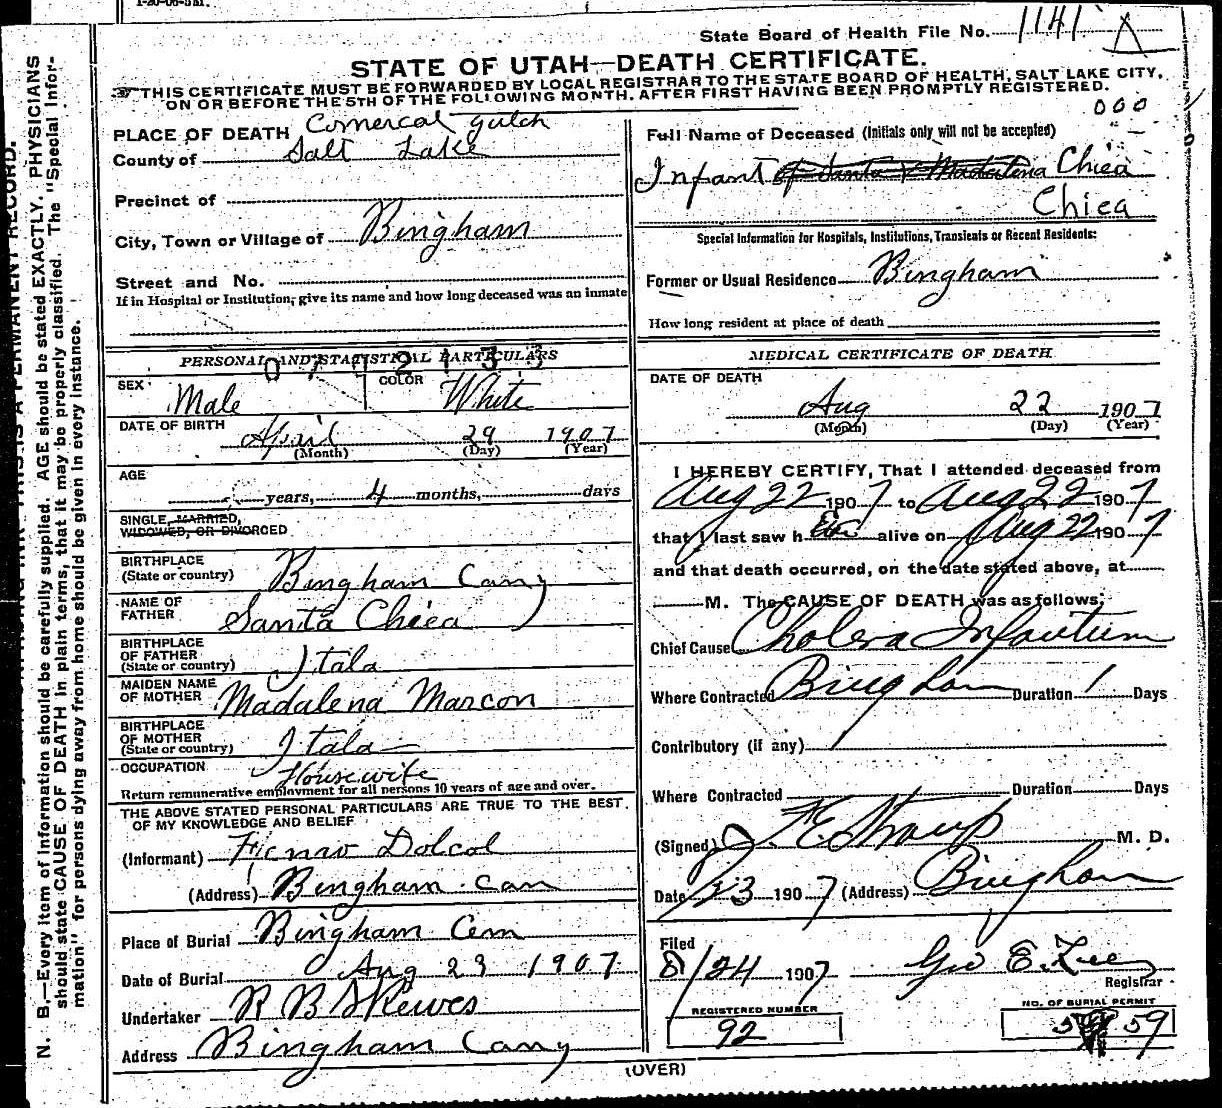 State Board of Health File No. 1141 X
STATE OF UTAH—DEATH CERTIFICATE.
THIS CERTIFICATE MUST BE FORWARDED BY LOCAL REGISTRAR TO THE STATE BOARD OF HEALTH, SALT LAKE CITY,
ON OR BEFORE THE 5TH OF THE FOLLOWING MONTH, AFTER FIRST HAVING BEEN PROMPTLY REGISTERED.
000
N. B.—Every item of information should be carefully supplied. AGE should be stated EXACTLY. PHYSICIANS
should state CAUSE OF DEATH in plain terms, that it may be properly classified. The "Special Infor-
mation" for persons dying away from home should be given in every instance.
PLACE OF DEATH Comercal gulch
County of Salt Lake
Precinct of
City, Town or Village of Bingham
Street and No.
If in Hospital or Institution, give its name and how long deceased was an inmate
PERSONAL AND STATISTICAL PARTICULARS
SEX Male COLOR White
DATE OF BIRTH April 29 1907
(Month) (Day) (Year)
AGE
years, 4 months, days
SINGLE, MARRIED,
WIDOWED, OR DIVORCED
BIRTHPLACE
(State or country) Bingham Cany
NAME OF
FATHER Santa Chiea
BIRTHPLACE
OF FATHER
(State or country) Itala
MAIDEN NAME
OF MOTHER Madalena Marcon
BIRTHPLACE
OF MOTHER
(State or country) Itala
OCCUPATION Housewife
Return remunerative employment for all persons 10 years of age and over.
THE ABOVE STATED PERSONAL PARTICULARS ARE TRUE TO THE BEST
OF MY KNOWLEDGE AND BELIEF
(Informant) Dolcol
(Address) Bingham Can
Place of Burial Bingham Cem
Date of Burial Aug 23 1907
Undertaker R B Skewes
Address Bingham Cany
Full Name of Deceased (Initials only will not be accepted)
Infant of Santa & Madalena Chiea
Chiea
Special Information for Hospitals, Institutions, Transients or Recent Residents:
Former or Usual Residence Bingham
How long resident at place of death
MEDICAL CERTIFICATE OF DEATH
DATE OF DEATH
Aug 22 1907
(Month) (Day) (Year)
I HEREBY CERTIFY, That I attended deceased from
Aug 22 1907 to Aug 22 1907
that I last saw h alive on Aug 22 1907
and that death occurred, on the date stated above, at
M. The CAUSE OF DEATH was as follows:
Chief Cause Cholera Infantum
Where Contracted Bingham Duration 1 Days
Contributory (if any)
Where Contracted Duration Days
(Signed) F. E. Straup M. D.
Date 23 1907 (Address) Bingham
Filed
8/24 1907 Geo E. Lee
Registrar
REGISTERED NUMBER
92
NO. OF BURIAL PERMIT
59
(OVER)